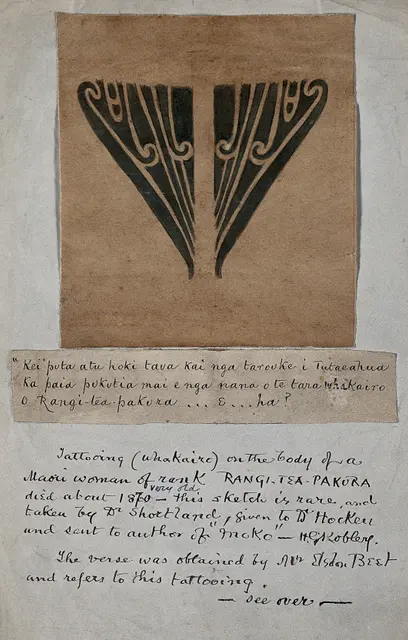 "Kei puta atu hoki taua kai nga tarouke i Tutaeahua
ka paia pukutia mai e nga nana o te tara whakairo
O Rangi-tea-pakura ... E ... ha?
Tattooing (whakairo) on the body of a
Maori woman of rank RANGI-TEA-PAKURA
very old
died about 1870 – this sketch is rare, and
taken by Dr Shortland, given to Dr Hocken
and sent to author of "Moko" – H G Robley.
The verse was obtained by Mr Elsdon BEST
and refers to this tattooing.
– see over –